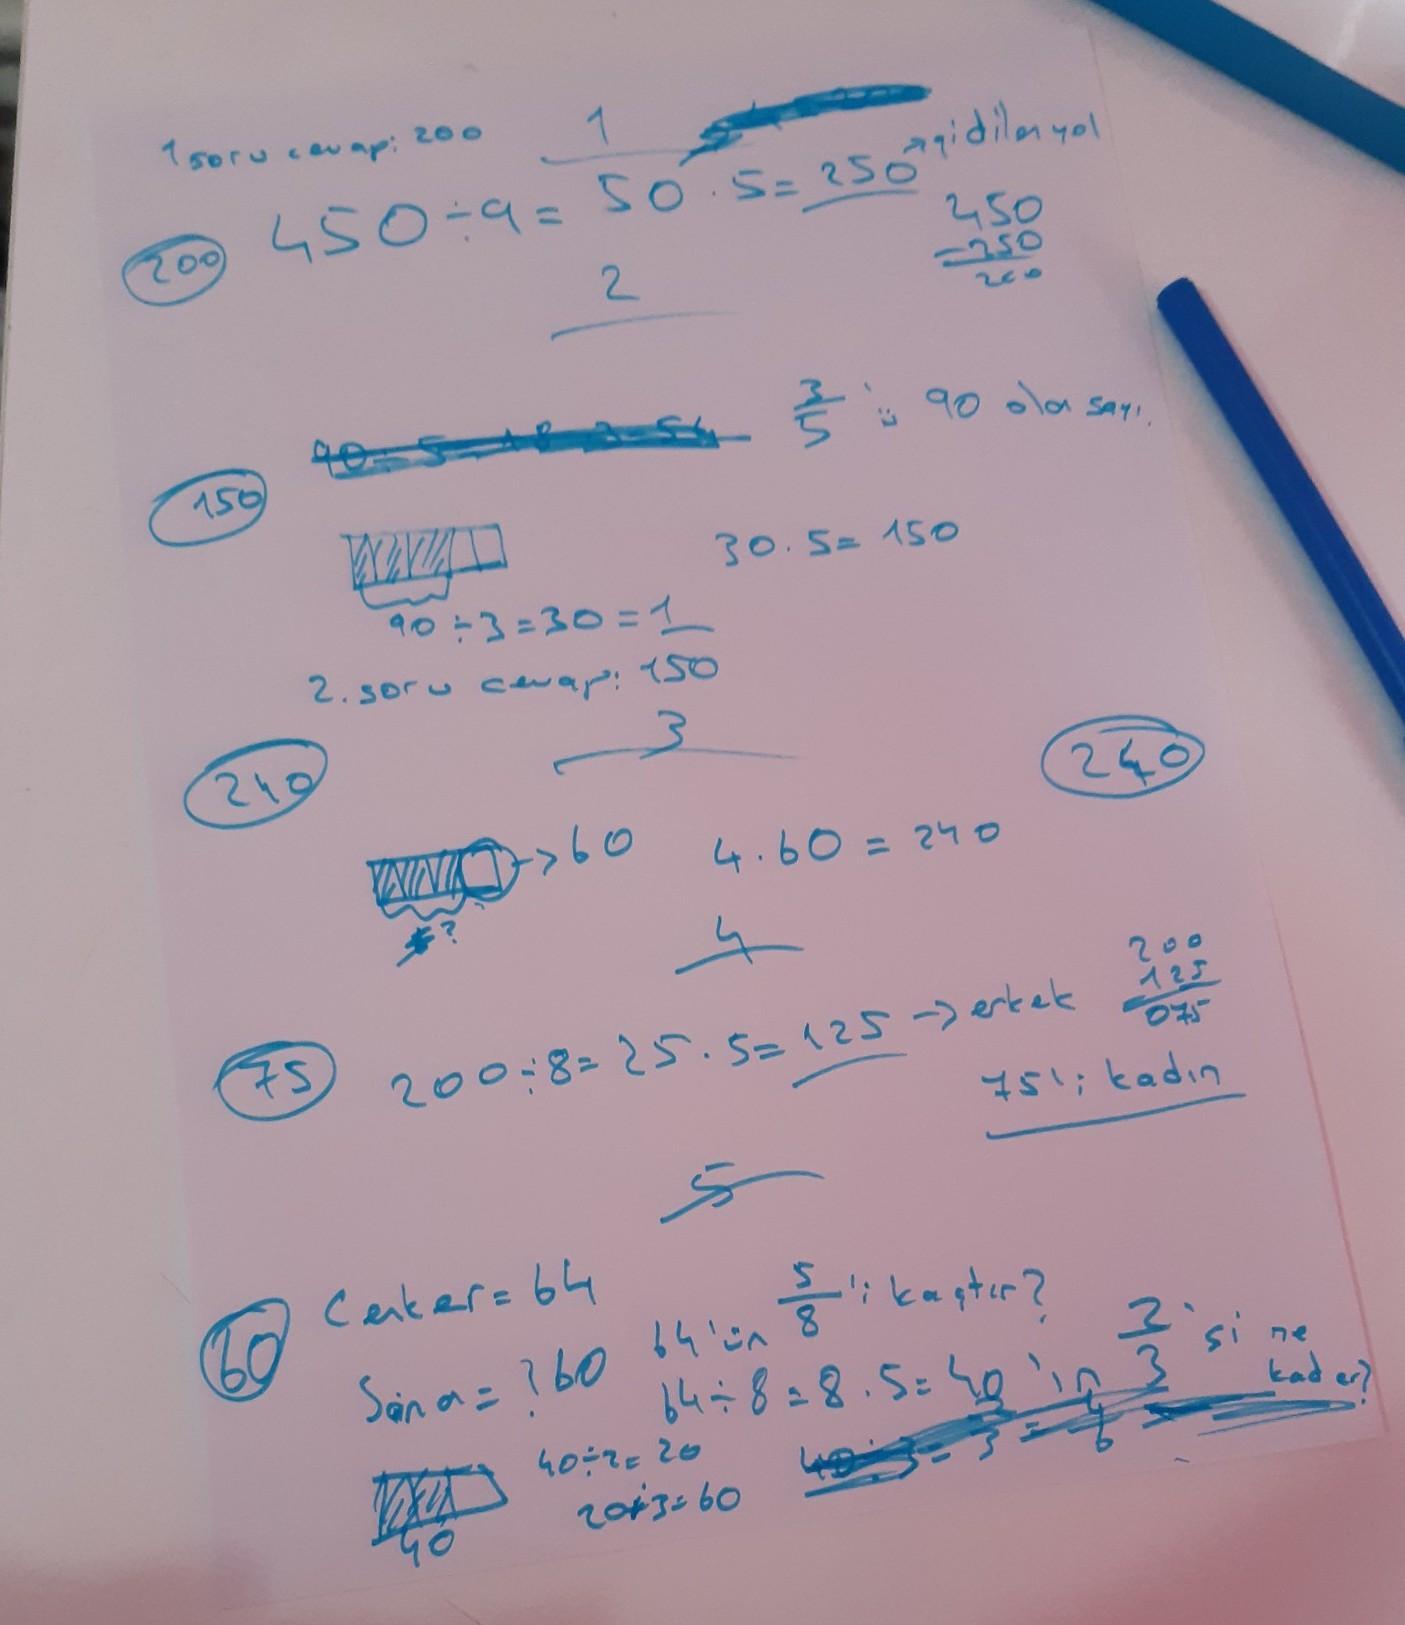 1 soru cevap: 200
1
450÷9= 50.5=250 →gidilen yol
200
450
-250
200
2
3/5 'ü 90 olan sayı.
150
30.5= 150
90÷3=30=1
2. soru cevap: 150
3
240
240
→60 4.60=240
?
4
75
200÷8=25.5=125 →erkek
200
125
075
75'i kadın
5
60
Cenker=64
64'ün 5/8'i kaçtır?
Sina=?60
64÷8=8.5=40'ın 2/3'si ne kadar?
40÷2=20
20.3=60
40